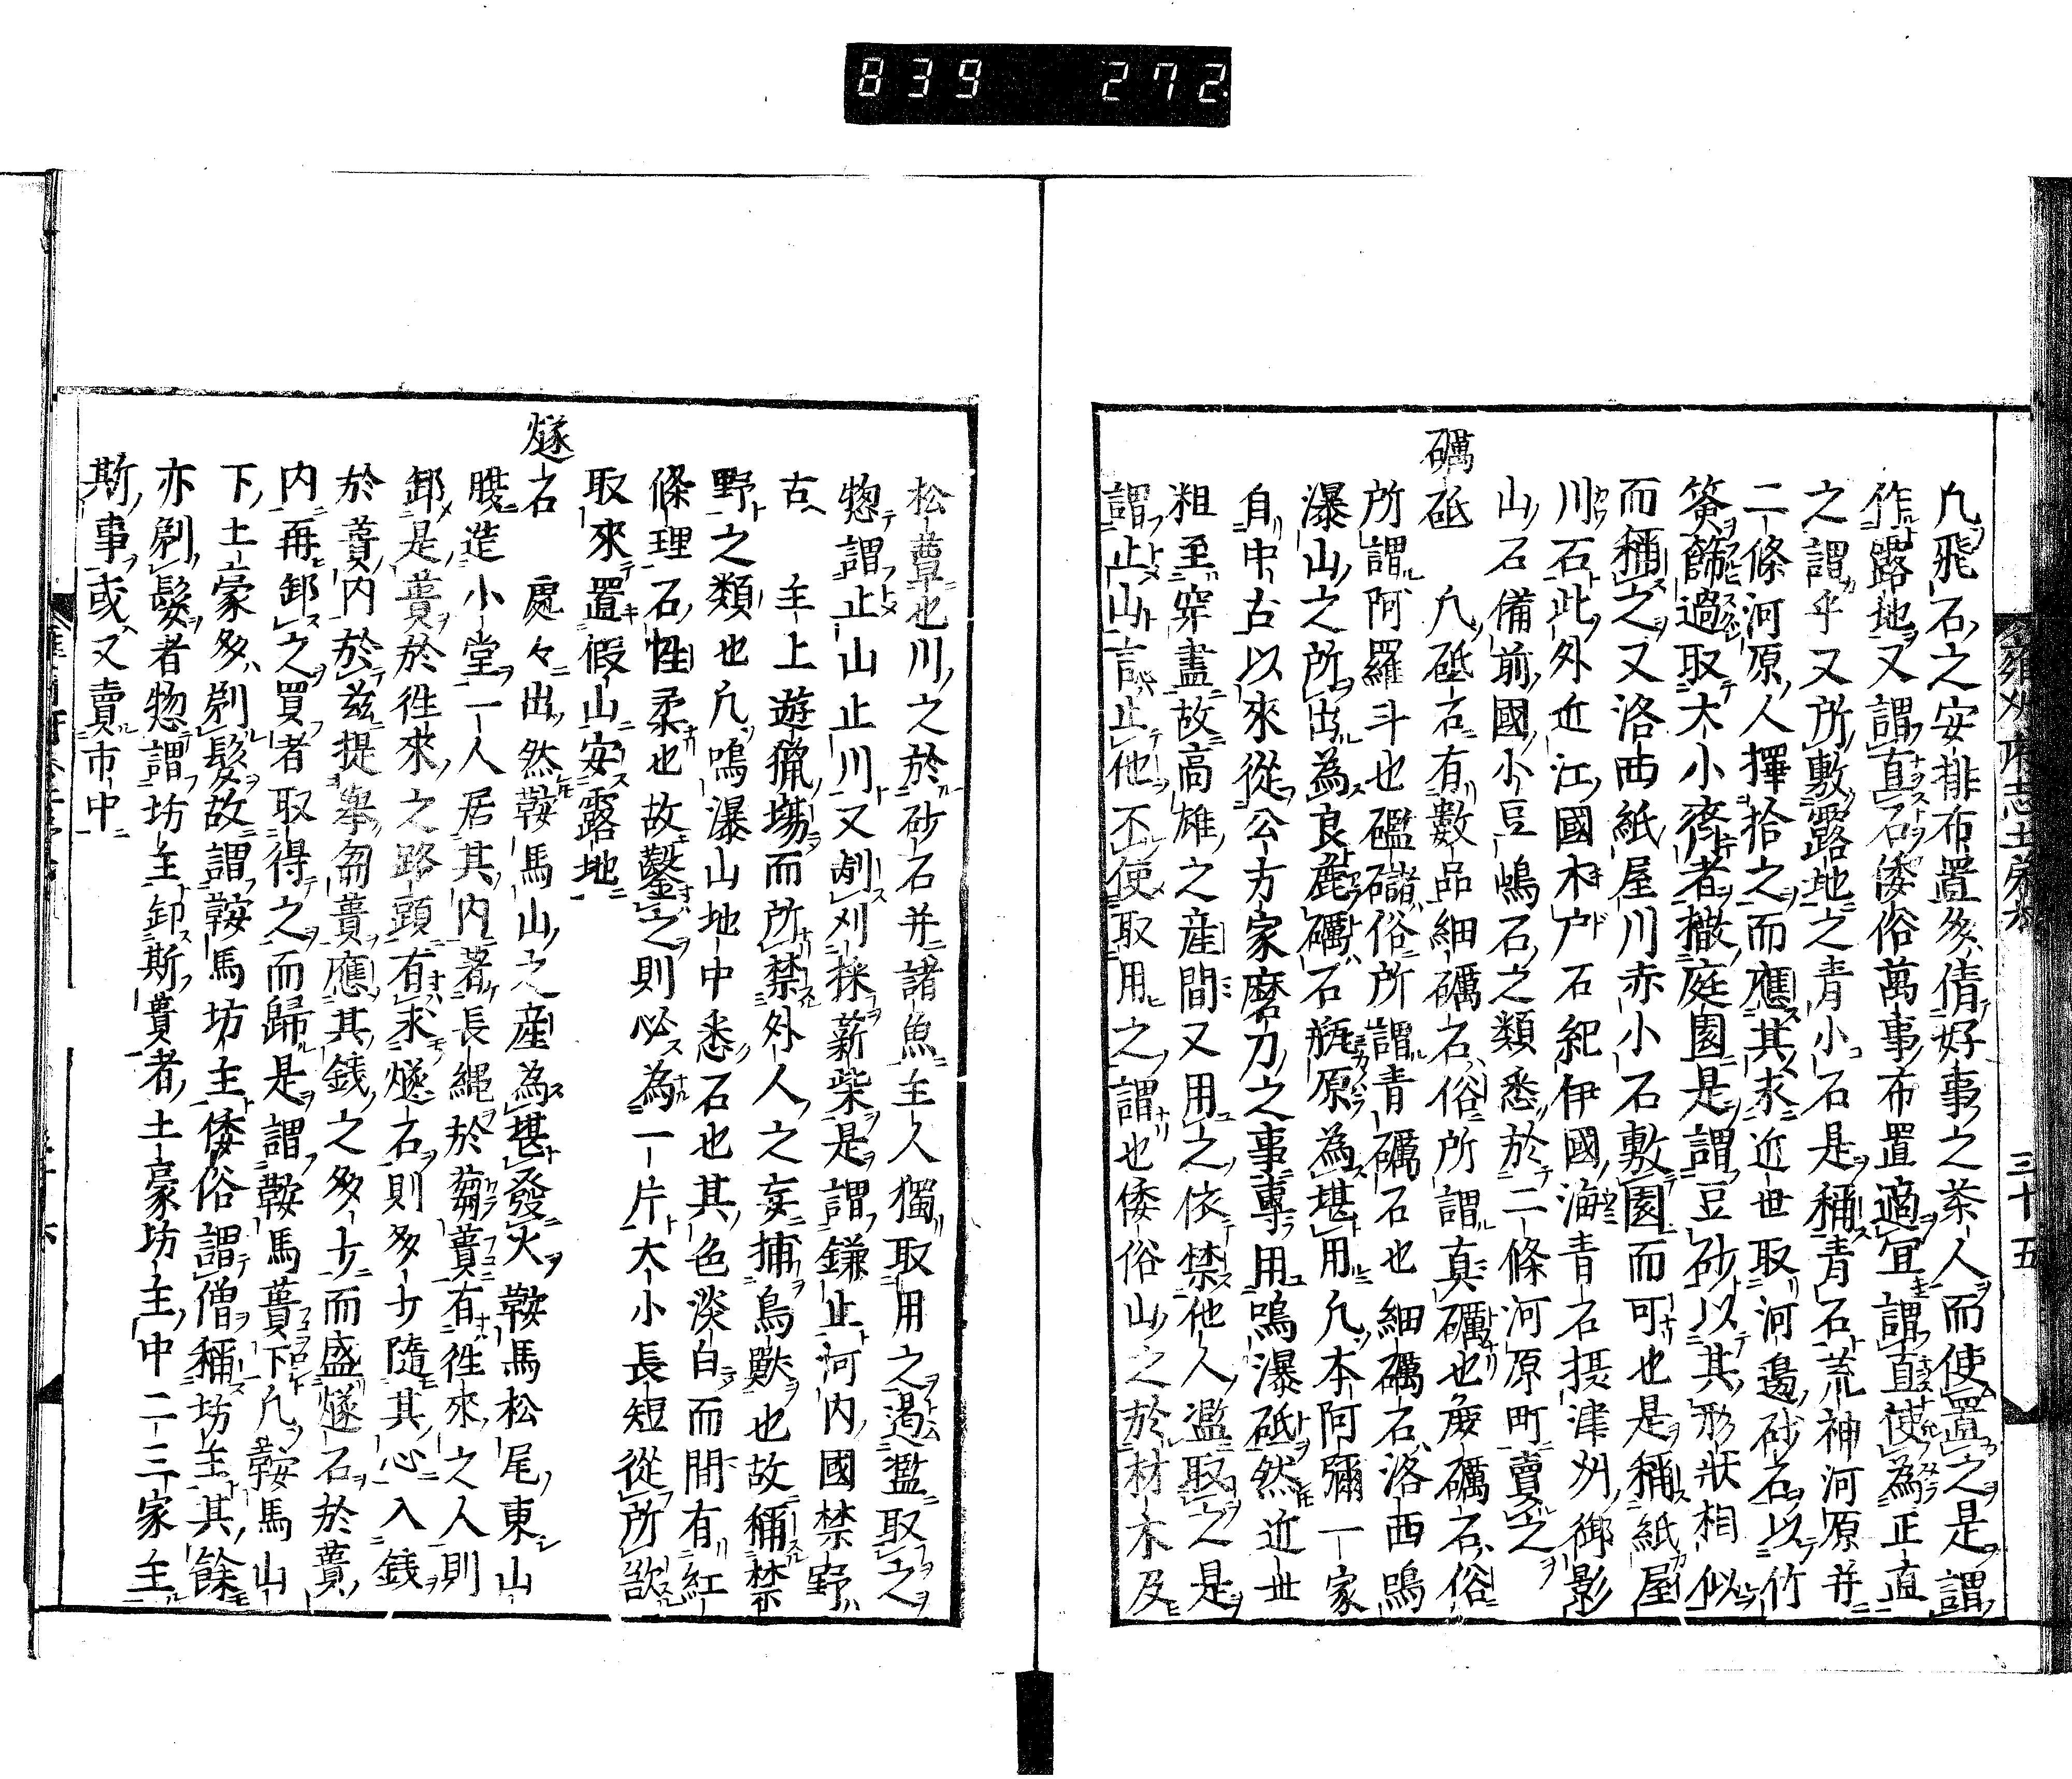 839 272
雍州府志土産部 三十五
凢飛石之安排布置多倩好事之茶人而使置之是謂
作露地又謂直石倭俗萬事布置適宜謂直使為正直
之謂乎又所敷露地之青小石是稱青石荒神河原并
二條河原人擇拾之而應其求近世取河邉砂石以竹
篩過取大小齊者撤庭園是謂豆砂以其形狀相似
而稱之又洛西紙屋川赤小石敷園而可也是稱紙屋
川石此外近江國木戸石紀伊國海青石摂津州御影
山石備前國小豆嶋石之類悉於二條河原町賣之
礪砥 凢砥石有數品細礪石俗所謂真礪也麁礪石俗
所謂阿羅斗也礛䃴俗所謂青礪石也細礪石洛西鳴
瀑山之所出為良麁礪石瓶原為堪用凢本阿彌一家
自中古以來從公方家磨刀之事專用鳴瀑砥然近世
粗至穿盡故高雄之産間又用之依禁他人濫取之是
謂止山言止他不使取用之謂也倭俗山之於材木及
松蕈也川之於砂石并諸魚主人獨取用之遏濫取之
惣謂止山止川又剏刈採薪柴是謂鎌止河内國禁野
古主上遊獵場而所禁外人之妄捕鳥獸也故稱禁
野之類也凢鳴瀑山地中悉石也其色淡白而間有紅
條理石性柔也故鑿之則必為一片大小長短從所欲
取來置假山安露地
燧石 處々出然鞍馬山之産為堪發火鞍馬松尾東山
腰造小堂一人居其内著長縄於蒭蕢有徃來之人則
卸是蕢於徃來之路頭有求燧石則多少隨其心入銭
於蕢内於茲提舉蒭蕢應其銭之多少而盛燧石於蕢
内再卸之買者取得之而歸是謂鞍馬蕢下凢鞍馬山
下土豪多剃髮故謂鞍馬坊主倭俗謂僧稱坊主其餘
亦剃髮者惣謂坊主卸斯蕢者土豪坊主中二三家主
斯事或又賣市中